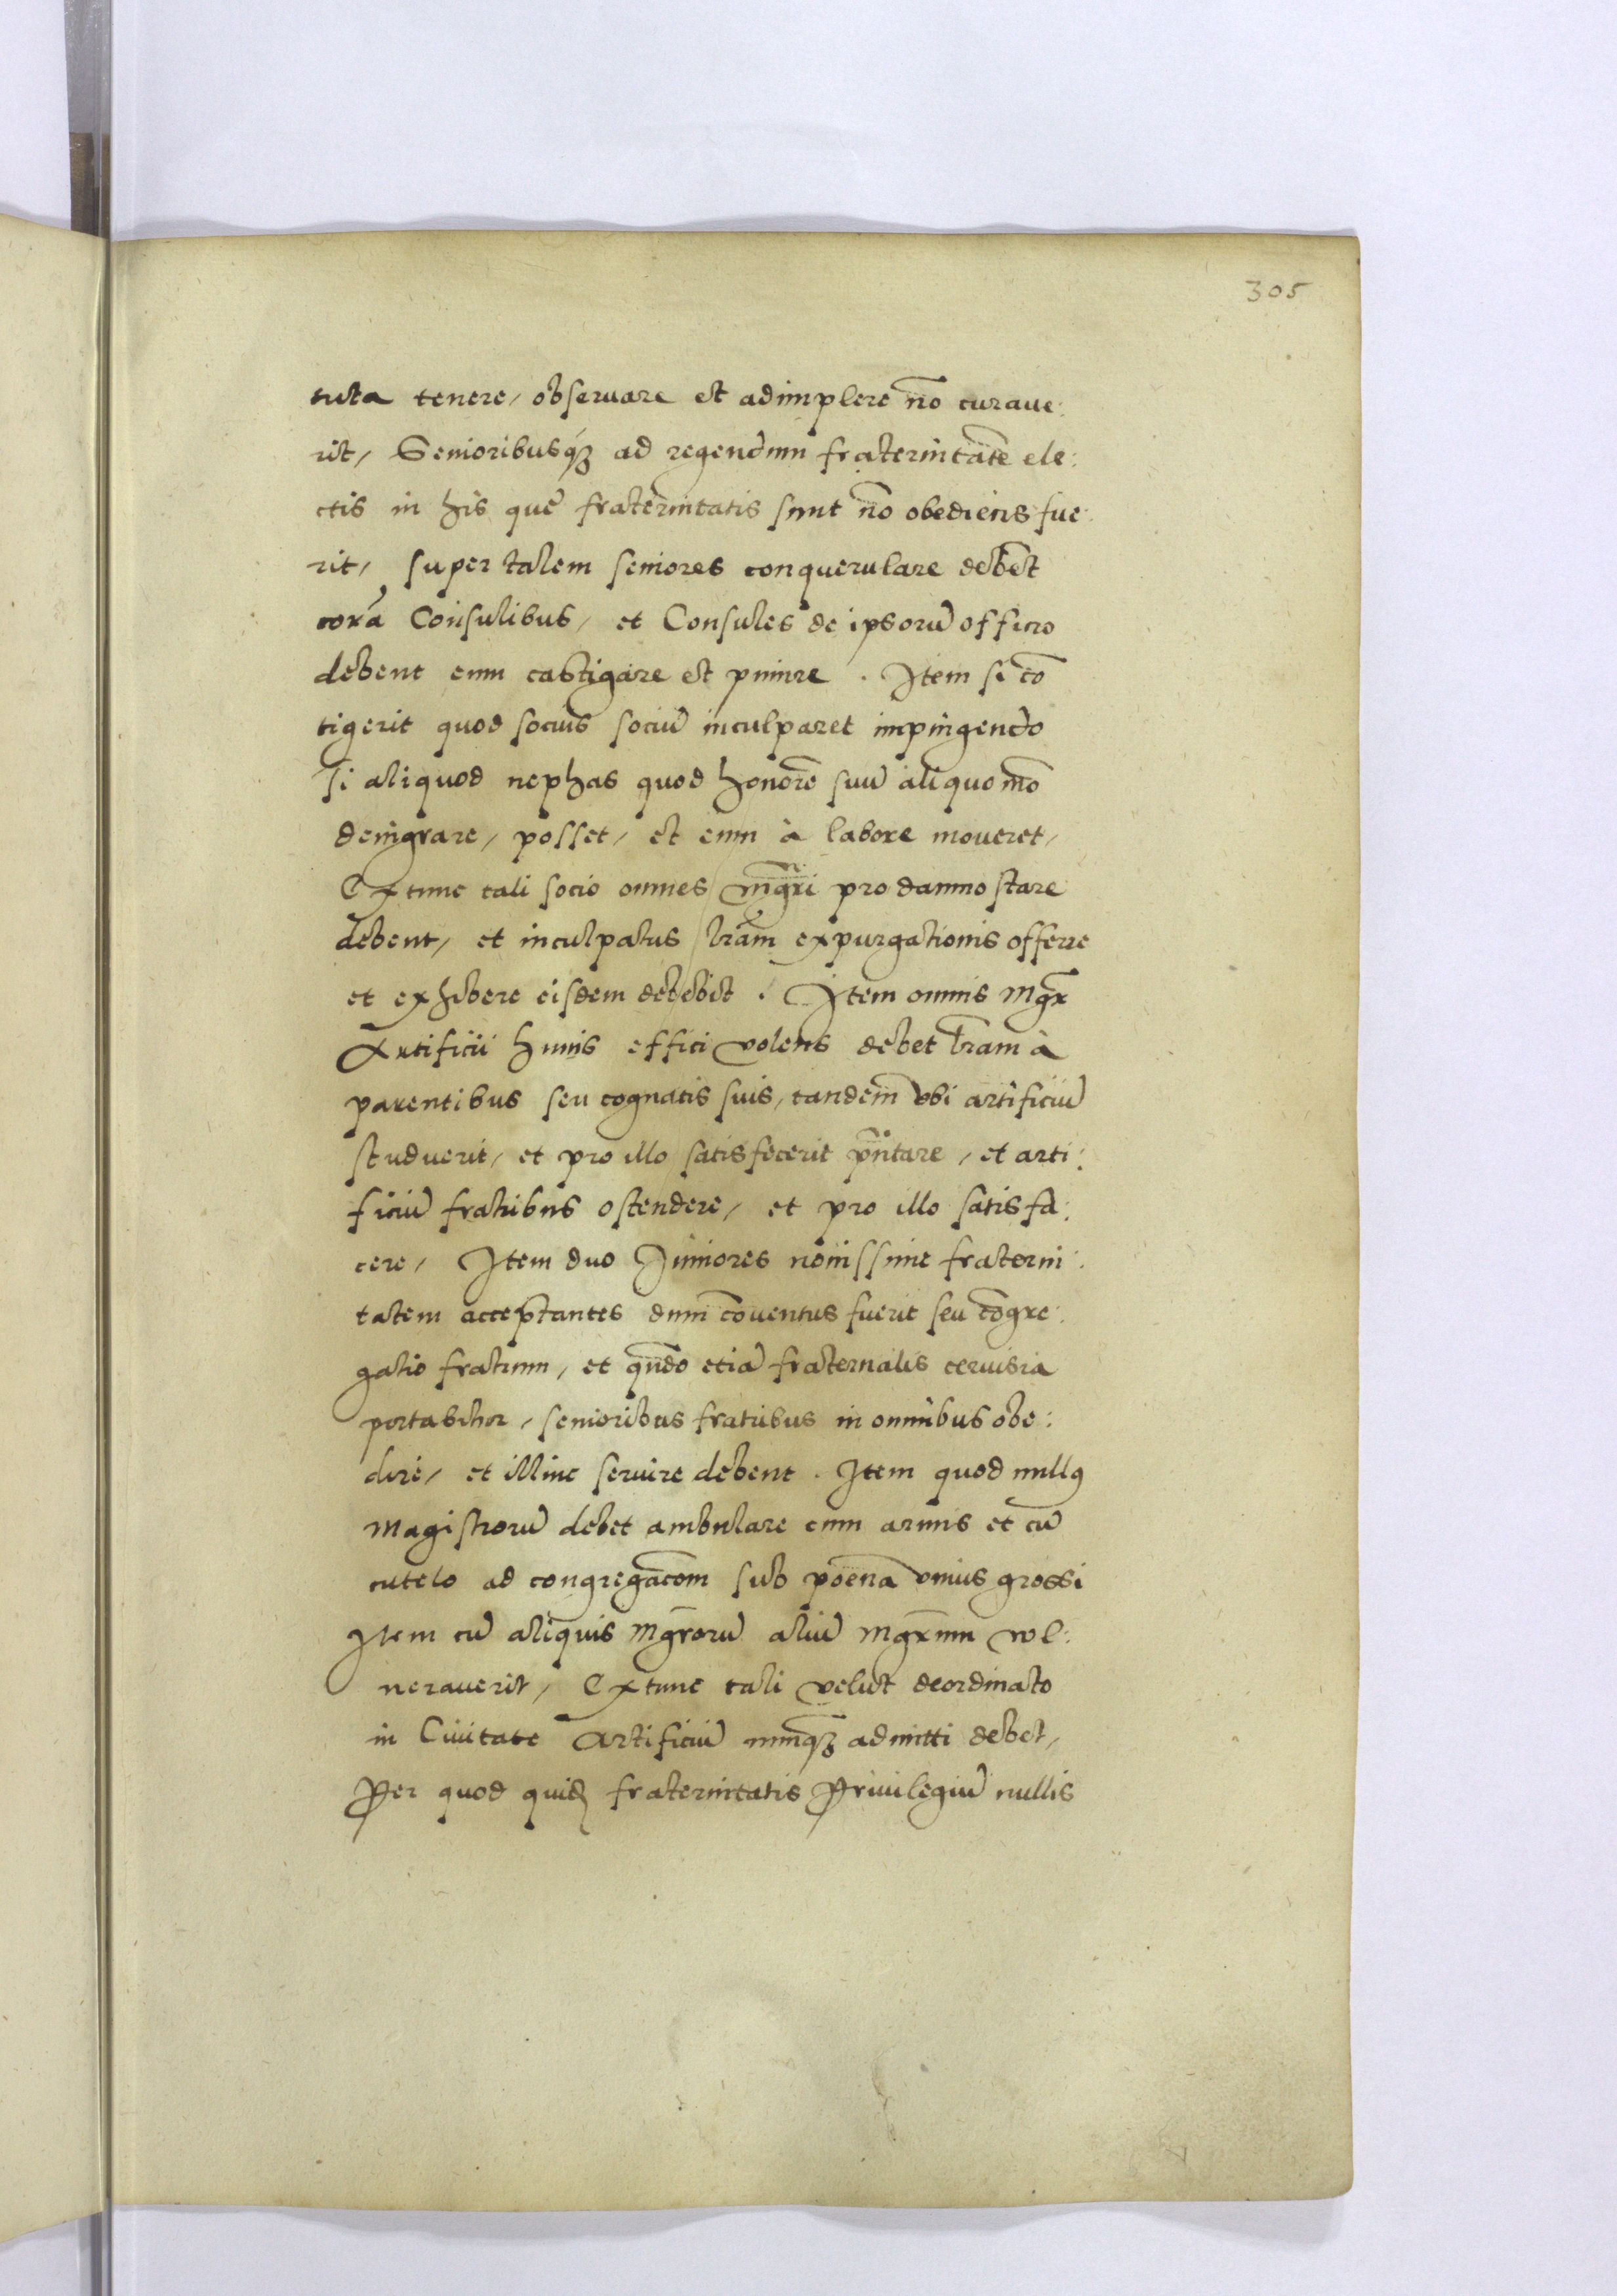 305
tuta tenere, obseruare et adimplere nō curaue:
rit, Senioribusq́ꝫ ad regendum fraternitatē ele:
ctis in his que fraternitatis sunt nō obediens fue:
rit, super talem seniores conquerulare debēt
corā Consulibus, et Consules de ipsorū officio
debent eum castigare et punire. Item si cō
tigerit quod socius sociū inculparet impingendo
si aliquod nephas quod honorē suū aliquo mō
denigrare, posset, et eum à labore moueret,
Extunc tali socio omnes mg̃ri pro damno stare
debent, et inculpatus l̃ram expurgationis offerre
et exhibere eisdem debebit. Item omnis Mg̃r
Artificii huius effici volens debet l̃ram à
parentibus seu cognatis suis, tandem vbi artificiū
studuerit, et pro illo satisfecerit p̃ntare, et arti:
ficiū fratribus ostendere, et pro illo satisfa:
cere, Item duo Juniores nouissime fraterni:
tatem acceptantes dum cōuentus fuerit seu cōgre:
gatio fratrum, et qn̄do etiā fraternalis ceruisia
portabitur, senioribus fratribus in omnibus obe:
dire, et illinc seruire debent. Item quod nullꝯ
Magistrorū debet ambulare cum armis et cū
cutelo ad congregac̄om sub poena vnius grossi
Item cū aliquis Mg̃rorū aliū Mg̃rum vol:
nerauerit, Extunc tali velut deordinato
in Ciuitate Artificiū nunqꝫ admitti debet,
Per quod quidē fraternitatis Priuilegiū nullis